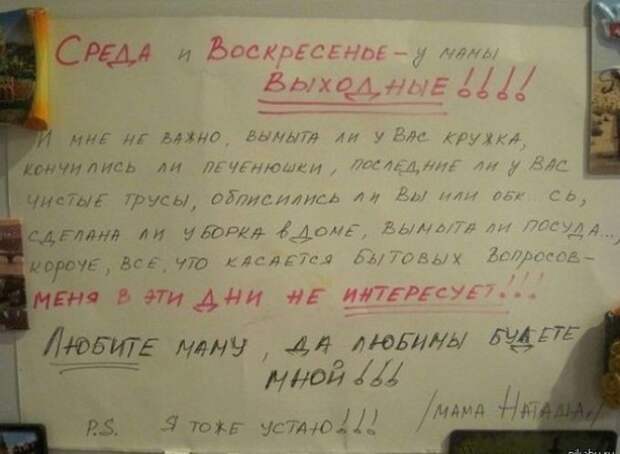 СРЕДА и ВОСКРЕСЕНЬЕ – У МАМЫ
ВЫХОДНЫЕ!!!!
И МНЕ НЕ ВАЖНО, ВЫМЫТА ЛИ У ВАС КРУЖКА,
КОНЧИЛИСЬ ЛИ ПЕЧЕНЮШКИ, ПОСЛЕДНИЕ ЛИ У ВАС
ЧИСТЫЕ ТРУСЫ, ОБПИСИЛИСЬ ЛИ ВЫ ИЛИ ОБК СЬ,
СДЕЛАНА ЛИ УБОРКА В ДОМЕ, ВЫМЫТА ЛИ ПОСУДА...,
КОРОЧЕ, ВСЕ, ЧТО КАСАЕТСЯ БЫТОВЫХ ВОПРОСОВ –
МЕНЯ В ЭТИ ДНИ НЕ ИНТЕРЕСУЕТ!!!
ЛЮБИТЕ МАМУ, ДА ЛЮБИМЫ БУДЕТЕ
МНОЙ!!!
/МАМА НАТАША/
P.S. Я ТОЖЕ УСТАЮ!!!
pikabu.ru